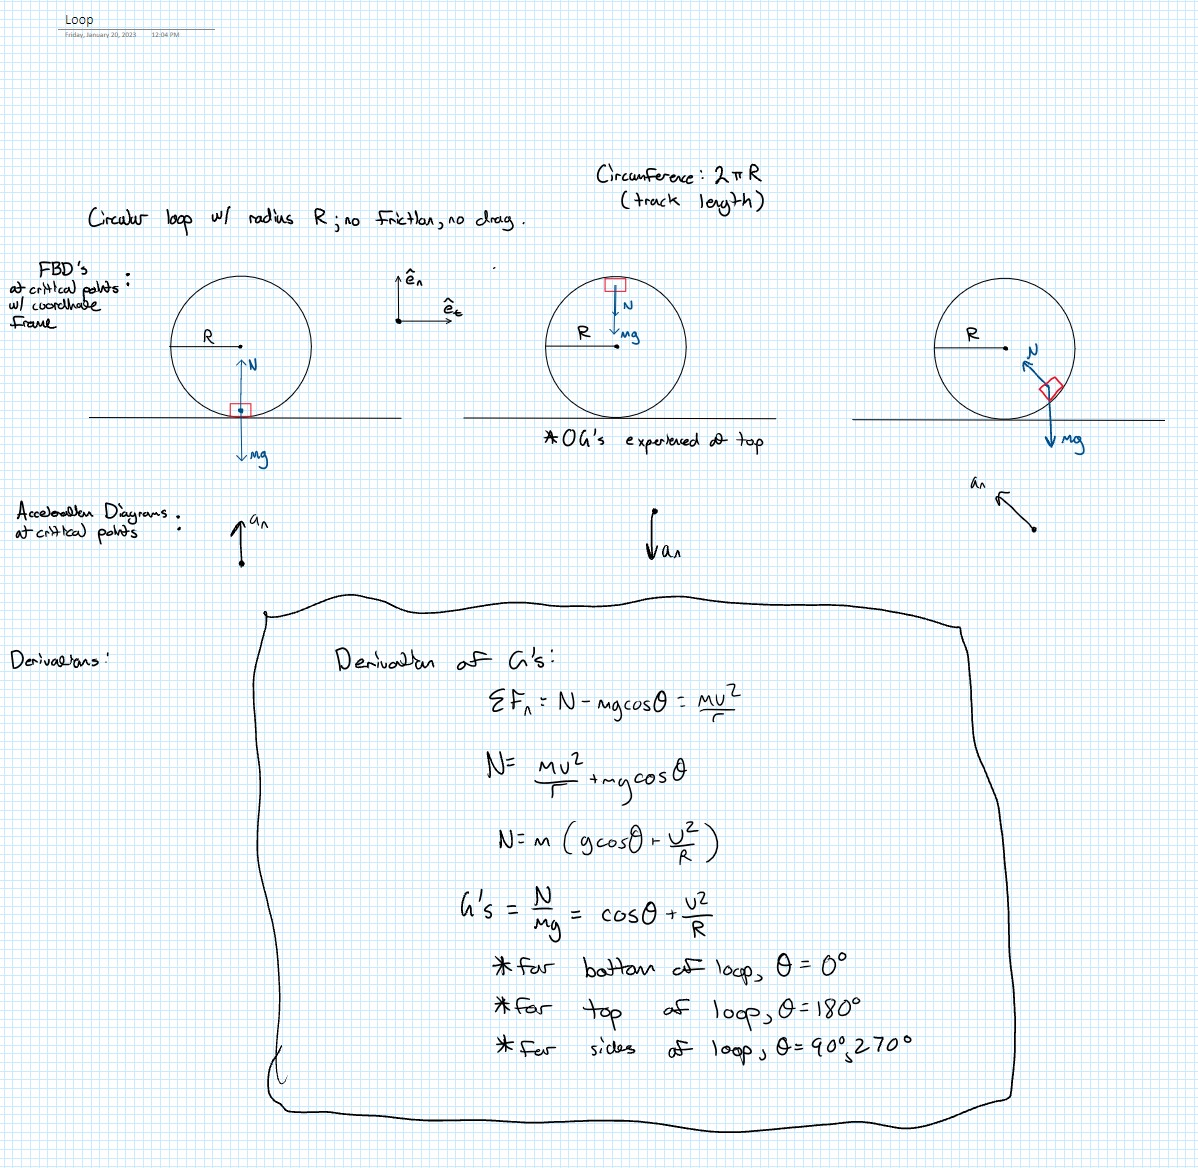 Loop
Friday, January 20, 2023 12:04 PM
Circumference: 2πR
(track length)
Circular loop w/ radius R; no friction, no drag.
FBD's
at critical points :
w/ coordinate
frame
R
N
mg
ê_n
ê_t
R
N
mg
R
N
mg
*0G's experienced @ top
Acceleration Diagrams :
at critical points
a_n
a_n
a_n
Derivations:
Derivation of G's:
ΣF_n = N - mgcosθ = mv²/r
N = mv²/r + mgcosθ
N = m (gcosθ + v²/R)
G's = N/mg = cosθ + v²/R
*for bottom of loop, θ = 0°
*for top of loop, θ = 180°
*for sides of loop, θ = 90°, 270°